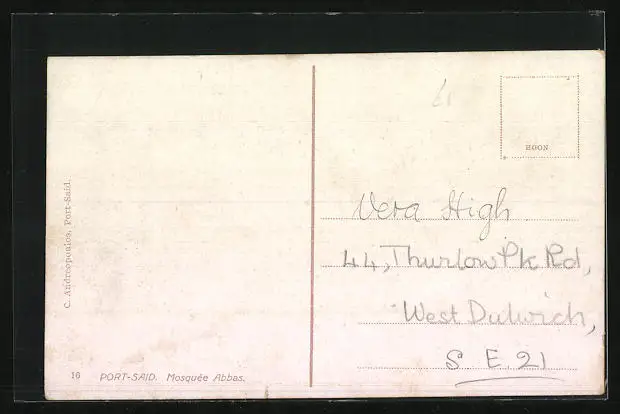 C. Andreopoulos, Port-Said.
16 PORT-SAID. Mosquée Abbas.
61
HOON
Vera High
44, Thurlow Pk Rd,
West Dulwich,
S E. 21